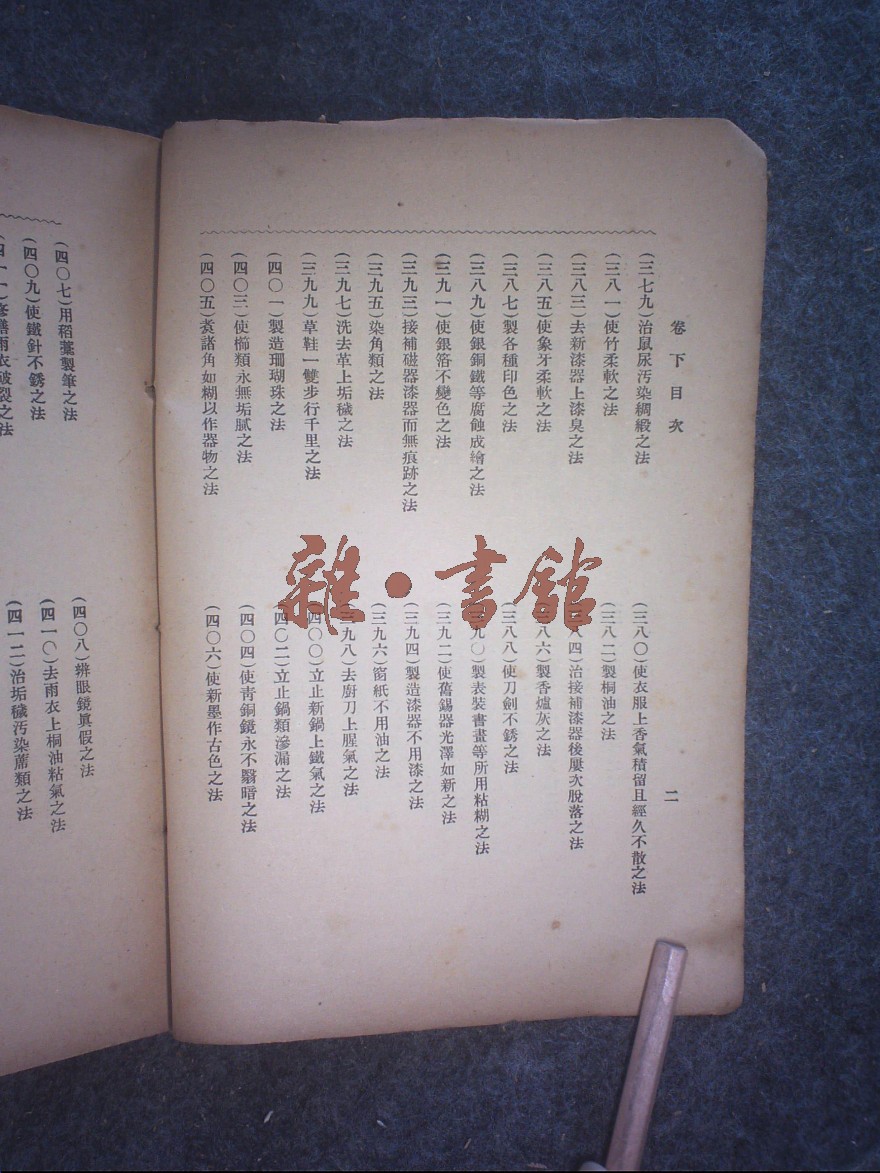 卷下目次
二
(三七九)治鼠尿汚染綢緞之法
(三八〇)使衣服上香氣積留且經久不散之法
(三八一)使竹柔軟之法
(三八二)製桐油之法
(三八三)去新漆器上漆臭之法
八四)治接補漆器後屢次脫落之法
(三八五)使象牙柔軟之法
八六)製香爐灰之法
(三八七)製各種印色之法
三八八)使刀劍不銹之法
(三八九)使銀銅鐵等腐蝕成繪之法
九〇)製表裝書畫等所用粘糊之法
(三九一)使銀箔不變色之法
三九二)使舊錫器光澤如新之法
(三九三)接補磁器漆器而無痕跡之法
三九四)製造漆器不用漆之法
(三九五)染角類之法
(三九六)窗紙不用油之法
(三九七)洗去革上垢穢之法
三九八)去廚刀上腥氣之法
(三九九)草鞋一雙步行千里之法
四〇〇)立止新鍋上鐵氣之法
(四〇一)製造珊瑚珠之法
四〇二)立止鍋類滲漏之法
(四〇三)使櫛類永無垢膩之法
(四〇四)使靑銅鏡永不翳暗之法
(四〇五)煑諸角如糊以作器物之法
(四〇六)使新墨作古色之法
(四〇七)用稻藁製筆之法
(四〇八)辨眼鏡眞假之法
(四〇九)使鐵針不銹之法
(四一〇)去雨衣上桐油粘氣之法
(四一一)修繕雨衣破裂之法
(四一二)治垢穢汚染蓆類之法
雜·書館